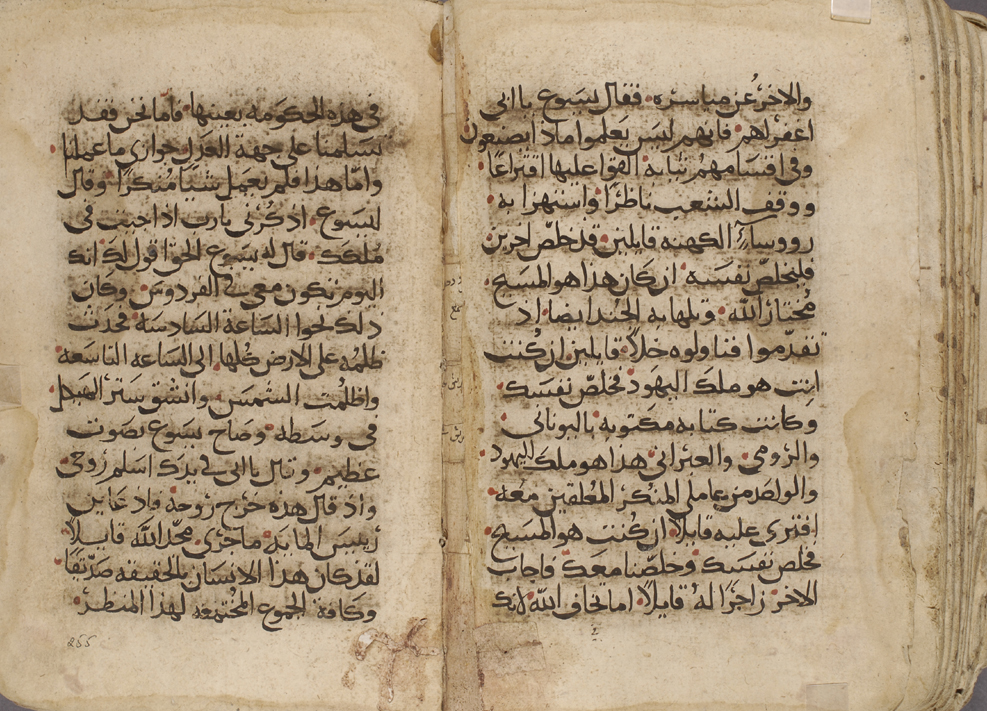 والاخر عن مياسره فقال يسوع يا ابي
اغفر لهم فانهم ليس يعلموا ماذا يصنعون
وفي اقتسامهم ثيابه القوا عليها اقتراعًا
ووقف الشعب ناظرًا واستهزا به
رووساء الكهنه قايلين قد خلص اخرين
فليخلص نفسه ان كان هذا هو المسيح
مختار الله وتلها به الجند ايضا اذ
تقدموا فناولوه خلاً قايلين ان كنت
انت هو ملك اليهود فخلص نفسك
وكانت كتابه مكتوبه باليوناني
والرومي والعبراني هذا هو ملك اليهود
والواحد من عاملي المنكر المعلقين معه
افترى عليه قايلاً ان كنت هو المسيح
فخلص نفسك وخلصنا معك فاجاب
الاخر زاجرًا له قايلاً اما تخاف الله لانك
في هذه الحكومه بعينها فاما نحن فقد
تسلمنا على جهة العدل جوازي ما عملنا
واما هذا فلم يعمل شيا منكرًا وقال
ليسوع اذكرني يارب اذا جيت في
ملكك قال له يسوع الحق اقول لك انك
اليوم تكون معي في الفردوس وكان
ذلك نحوا الساعة السادسه فحدثت
ظلمه على الارض كلها الى الساعه التاسعه
واظلمت الشمس وانشق ستر الهيكل
في وسطه وصاح يسوع بصوت
عظيم وقال يا ابي في يدك اسلم روحي
واذ قال هذه خرج روحه فاذ عاين
رييس المايه ما جرى مجد الله قايلاً
لقد كان هذا الانسان بالحقيقه صديقًا
وكافة الجموع المجتمعه لهذا المنظر
255